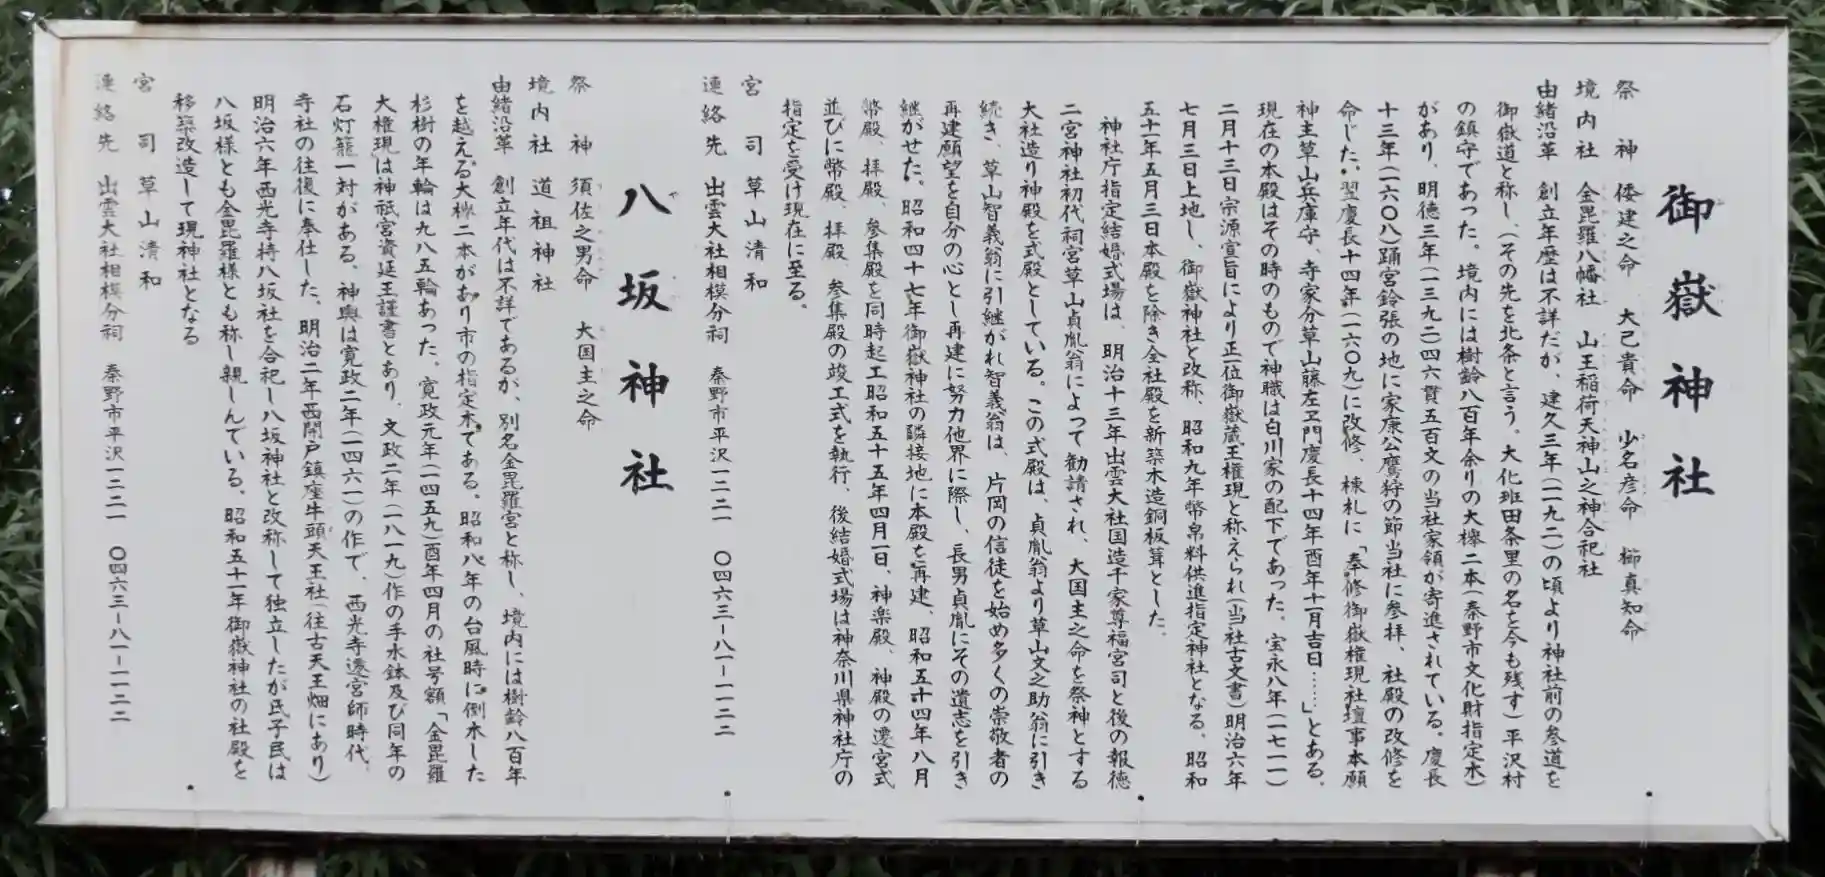 御嶽神社
祭神 倭建之命 大己貴命 少名彦命 櫛真知命
境内社 金毘羅八幡社 山王稲荷天神山之神合祀社
由緒沿革 創立年歴は不詳だが、建久三年(一一九二)の頃より神社前の参道を
御嶽道と称し、(その先を北条と言う。大化班田条里の名を今も残す)平沢村
の鎮守であった。境内には樹齢八百年余りの大欅二本(秦野市文化財指定木)
があり、明徳三年(一三九二)四六貫五百文の当社家領が寄進されている。慶長
十三年(一六〇八)踊宮鈴張の地に家康公鷹狩の節当社に参拝、社殿の改修を
命じた。翌慶長十四年(一六〇九)に改修、棟札に「奉修御嶽権現社壇事本願
神主草山兵庫守、寺家分草山藤左ヱ門慶長十四年酉年十一月吉日……」とある。
現在の本殿はその時のもので神職は白川家の配下であった。宝永八年(一七一一)
二月十三日宗源宣旨により正一位御嶽蔵王権現と称えられ(当社古文書)明治六年
七月三日上地し、御嶽神社と改称、昭和九年幣帛料供進指定神社となる。昭和
五十一年五月三日本殿を除き全社殿を新築木造銅板葺とした。
神社庁指定結婚式場は、明治十三年出雲大社国造千家尊福宮司と後の報徳
二宮神社初代祠宮草山貞胤翁によって勧請され、大国主之命を祭神とする
大社造り神殿を式殿としている。この式殿は、貞胤翁より草山文之助翁に引き
続き、草山智義翁に引継がれ智義翁は、片岡の信徒を始め多くの崇敬者の
再建願望を自分の心とし再建に努力他界に際し、長男貞胤にその遺志を引き
継がせた。昭和四十七年御嶽神社の隣接地に本殿を再建、昭和五十四年八月
幣殿、拝殿、参集殿を同時起工昭和五十五年四月一日、神楽殿、神殿の遷宮式
並びに幣殿、拝殿、参集殿の竣工式を執行、後結婚式場は神奈川県神社庁の
指定を受け現在に至る。
宮司 草山清和
連絡先 出雲大社相模分祠 秦野市平沢一二二一 〇四六三ー八一ー一一二二
八坂神社
祭神 須佐之男命 大国主之命
境内社 道祖神社
由緒沿革 創立年代は不詳であるが、別名金毘羅宮と称し、境内には樹齢八百年
を越える大欅二本があり市の指定木である。昭和八年の台風時に倒木した
杉樹の年輪は九八五輪あった。寛政元年(一四五九)酉年四月の社号額「金毘羅
大権現」は神祇宮資延王謹書とあり、文政二年(一八一九)作の手水鉢及び同年の
石灯籠一対がある、神輿は寛政二年(一四六一)の作で、西光寺遷宮師時代、
寺社の往復に奉仕した。明治二年西開戸鎮座牛頭天王社(往古天王畑にあり)
明治六年西光寺持八坂社を合祀し八坂神社と改称して独立したが氏子民は
八坂様とも金毘羅様とも称し親しんでいる、昭和五十一年御嶽神社の社殿を
移築改造して現神社となる
宮司 草山清和
連絡先 出雲大社相模分祠 秦野市平沢一二二一 〇四六三ー八一ー一一二二